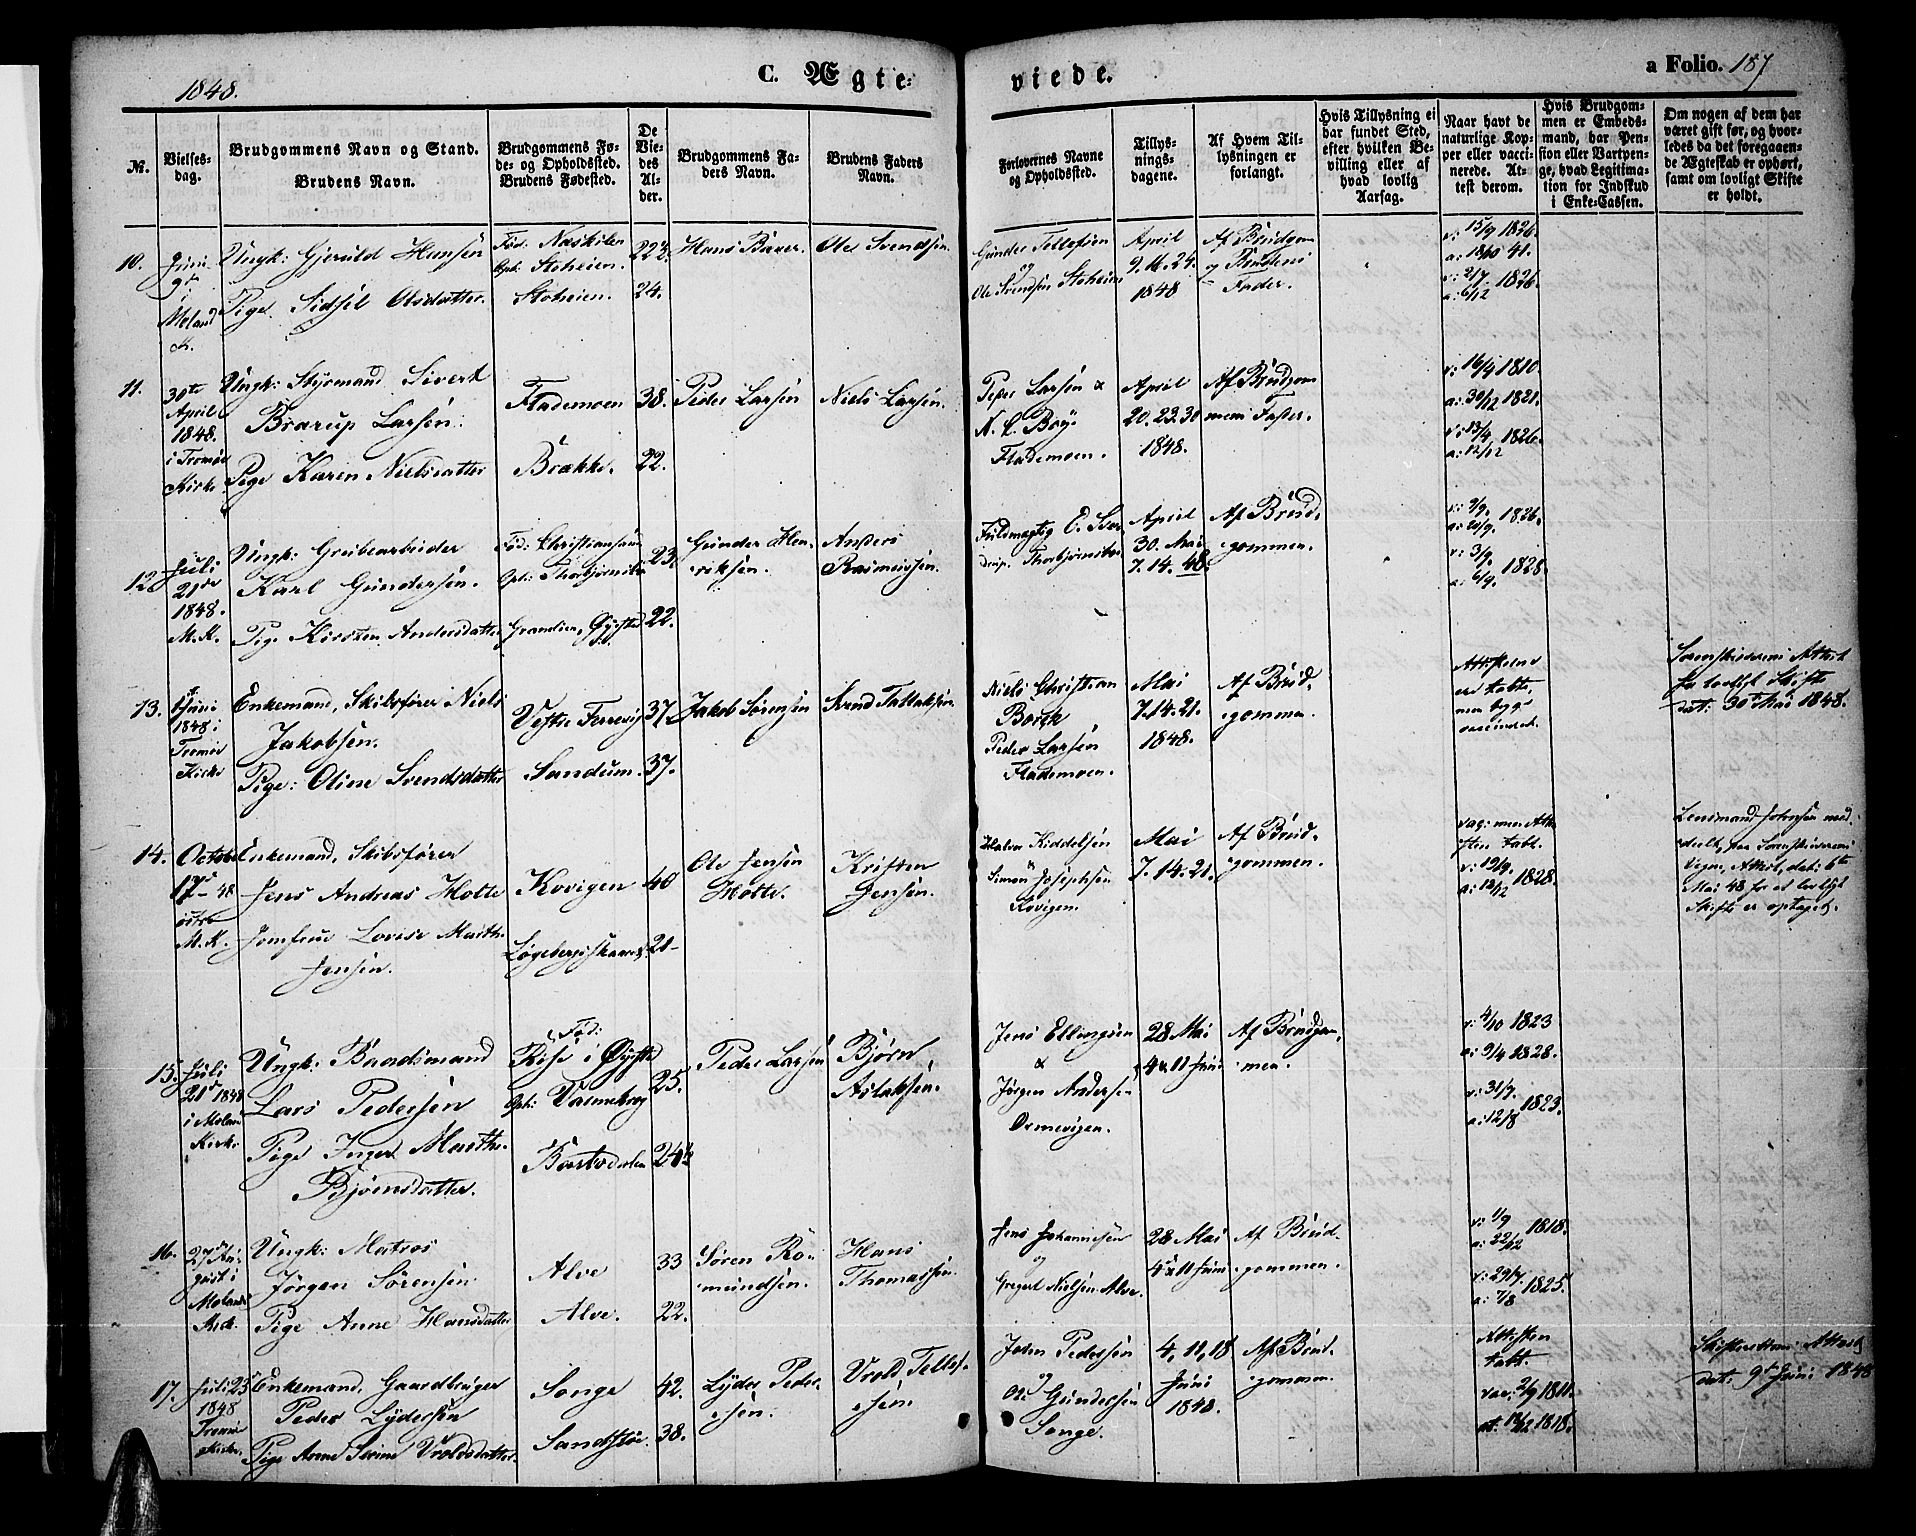 1848.
C. Ægte=
viede.
a Folio. 187
No.
Vielses-
dag.
Brudgommens Navn og Stand.
Brudens Navn.
Brudgommens Fø-
de- og Opholdssted.
Brudens Fødested.
De
Vie-
des
Al-
der.
Brudgommens Fa-
ders Navn.
Brudens Faders
Navn.
Forlovernes Navne
og Opholdssted.
Tillys-
nings-
dagene.
Af Hvem Til-
lysningen er
forlangt.
Hvis Tillysning ei
har fundet Sted,
efter hvilken Be-
villing eller af
hvad lovlig
Aarsag.
Naar havt de
naturlige Kop-
per eller vacci-
nerede. At-
test derom.
Hvis Brudgom-
men er Embeds-
mand, har Pen-
sion eller Vartpen-
ge, hvad Legitima-
tion for Indskud
i Enke-Cassen.
Om nogen af dem har
været gift før, og hvor-
ledes da det foregaaen-
de Ægteskab er ophørt,
samt om lovligt Skifte
er holdt.
10.
Juni
9de
Moland
K.
Ungk: Gjeruld Hansen
Pige Sidsel Olsdatter.
Fød: Næskilen
Oph: Stoheien.
Stoheien.
22½
24.
Hans
Ole Svendsen.
Gunder Tellefsen
og
Ole Svendsen Stoheien
April
9. 16. 24.
1848
Af Brudgom
og Brudens
Fader.
v: 15/9 1826.
a: 18/10 41.
v: 2/7 1826.
a: 6/12
11.
30te
April
1848.
i Tromø
Kirke
Ungk: Styrmand Sivert
Brarup Larsen.
Pige Karen Nielsdatter
Flademoen
Brække.
38.
22.
Peder Larsen
Niels Larsen.
Peder Larsen &
N. C. Boy
Flademoen.
April
20. 23. 30
1848.
Af Brudgom
mens Faster.
v: 16/4 1810.
a: 30/12 1821.
v: 13/4 1826.
a: 12/12
12.
Juli
21de
1848.
M. K.
Ungk: Grubearbeider
Karl Gundersen.
Pige Kirsten Andersdatter
Fød: Christiansand
Oph: Thorbjørnsbo
Grandien, Øyestad
23.
22.
Gunder Hen-
riksen.
Anders
Rasmussen.
Fuldmægtig
Thorbjørnsbo
April
30. Mai
7. 14. 48.
Af Brud-
gommen.
v: 9/9. 1826.
a: 20/9.
v: 3/9. 1828.
a: 6/9.
13.
Juni
1848 i
Tromø
Kirke
Enkemand, Skibsfører Niels
Jakobsen.
Pige: Oline Svendsdatter
Vestre Ferrevig
Sandum.
37.
37.
Jakob Sørensen
Svend Tallaksen
Niels Christian
Borch
Peder Larsen
Flademoen.
Mai
7. 14. 21.
1848.
Af Brud-
gommen.
Attesterne
ere tabte,
men begge
vaccineret.
Sorenskriverens Attest
for lovligt Skifte
dat: 30te Mai 1848.
14.
October
17de 48
østre
M. K.
Enkemand, Skibsfører
Jens Andreas Holte
Jomfrue Lovise Marthe
Jensen.
Kovigen
40
21
Ole Jensen
Holte.
Kristen
Jensen.
Halvor Kiddelsen
Simon Josephsen
Kovigen.
Mai
7. 14. 21.
Af Brud-
gommen.
vac: men Atte-
sten tabt.
v: 19/9. 1828.
a: 12/12
Lensmand Johnsen med-
deelt, paa Sorenskriverens
Vegne, Attest, dat: 6te
Mai 48 for at lovligt
Skifte er optaget.
15.
Juli
21de 1848
i Moland
Kirke
Ungk: Baadsmand
Lars Pedersen
Pige Inger Marthe
Bjørnsdatter.
Fød:
Rise i Øyestad
Oph:
25.
24½
Peder Larsen
Bjørn
Aslaksen.
Jens Ellingsen
&
Jørgen Andersen
Ormevigen.
28 Mai
4 & 11 Juni
Af Brudgom-
men.
v: 4/10 1823
a: 9/4 1828.
v: 31/7. 1823.
a: 12/8
16.
27de Au-
gust i
Molands
Kirk.
Ungk: Matros
Jørgen Sørensen
Pige Anne Hansdatter
Alve
Alve.
33
22.
Søren Ro-
mundsen.
Hans
Thomassen.
Jens Johannesen
og
Gregert Nielsen Alve.
28 Mai
4 & 11 Juni
Af Brud-
gommen.
v: 1/9 1818.
a: 22/12
v: 29/7. 1825.
a: 7/8
17.
Juli 25
1848
Tromø
Kirke.
Enkemand, Gaardbruger
Peder Lydersen
Pige Anne Serine Vroldsdatter
Songe
42.
38.
Lyder Peder-
sen.
Vrold Tellef-
sen
John Pedersen
og
Ole Gundersen
Songe.
4, 11, 18
Juni
1848.
Af Brud-
gommen
Attesten
tabt.
vac: 2/9 1811.
at. 12/12 1818.
Skifterettens Attest
dat: 9de Juni 1848